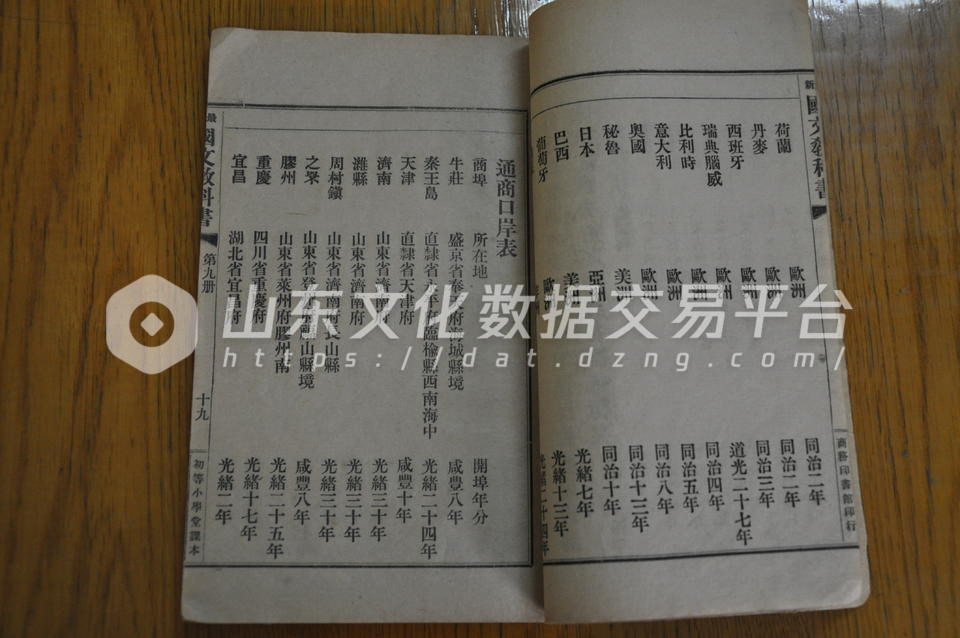 新國文教科書
商務印書館印行
荷蘭 歐洲 同治二年
丹麥 歐洲 同治二年
西班牙 歐洲 同治三年
瑞典腦威 歐洲 道光二十七年
比利時 歐洲 同治四年
意大利 歐洲 同治五年
奧國 歐洲 同治八年
秘魯 美洲 同治十三年
日本 亞洲 同治十年
巴西 美洲 光緒七年
葡萄牙 歐洲 光緒十三年
光緒二十四年
通商口岸表
商埠 所在地 開埠年分
牛莊 盛京省奉天府海城縣境 咸豐八年
秦王島 直隸省永平府臨榆縣西南海中 光緒二十四年
天津 直隸省天津府 咸豐十年
濟南 山東省濟南府 光緒三十年
濰縣 山東省濟南府 光緒三十年
周村鎮 山東省濟南府長山縣 光緒三十年
之罘 山東省登州府福山縣境 咸豐八年
膠州 山東省萊州府膠州南 光緒二十五年
重慶 四川省重慶府 光緒十七年
宜昌 湖北省宜昌府 光緒二年
最國文教科書 第九册 十九 初等小學堂課本
山东文化数据交易平台
https://dat.dzng.com/